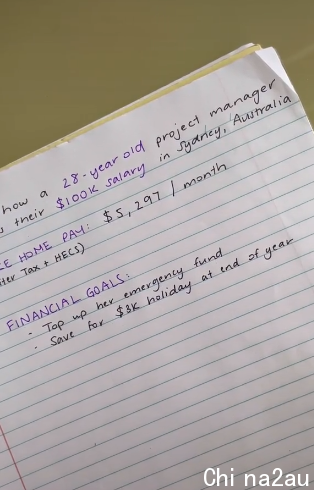 how a 28-year old project manager
their $100K salary in Sydney, Australia
HOME PAY: $5,297 / month
Tax + HECS)
FINANCIAL GOALS:
- Top up her emergency fund
- Save for $3K holiday at end of year
Chi na2au